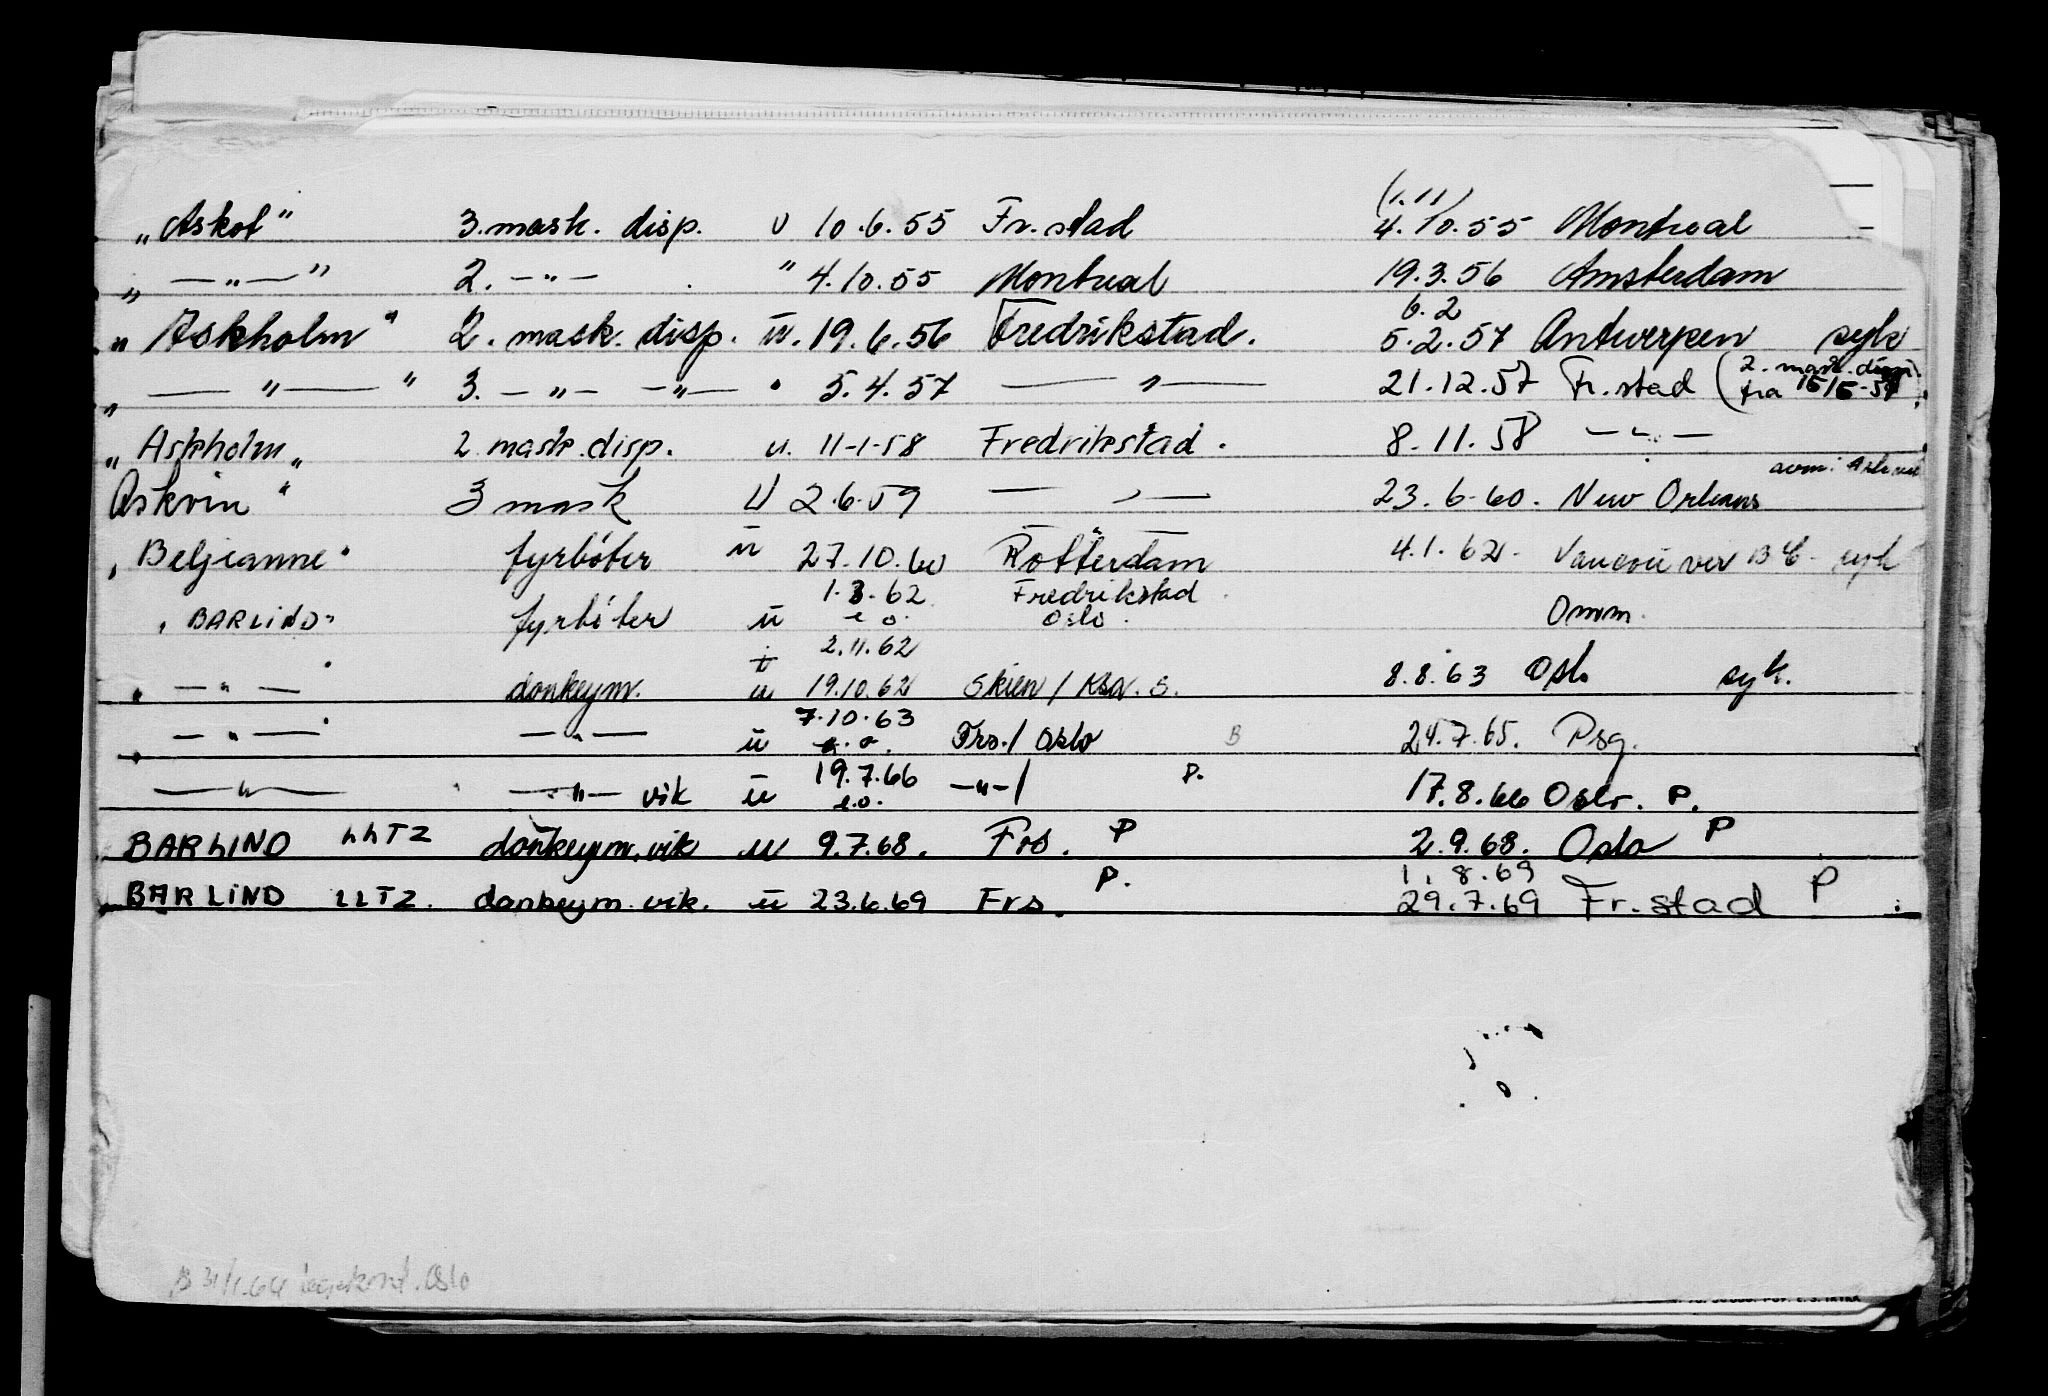 (1.11)
„Askot" 3. mask. disp. u 10.6.55 Fr.stad 4.10.55 Montreal
„ —„—" 2. —„— " 4.10.55 Montreal 19.3.56 Amsterdam
6.2
„Askholm" 2. mask. disp. u. 19.6.56 Fredrikstad. 5.2.57 Antwerpen syk
„ —"— " 3. —"— —"— " 5.4.57 —"— 21.12.57 Fr.stad (2. mask. disp. fra 15/5-57)
„Askholm„ 2 mask. disp. u. 11-1-58 Fredrikstad. 8.11.58 —"—
Askvin" 3 mask U 2.6.59 —"— 23.6-60. New Orleans
„Beljeanne" fyrbøter u 27.10.60 Rotterdam 4.1.62. Vancouver BC. syk
1.3.62 Fredrikstad
„BARLIND" fyrbøter u e o. Oslo. Omm.
2.11.62
„ —"— " donkeym. u 19.10.62 Skien / Ksn. S. 8.8.63 Oslo syk.
7.10.63
„ —"— " —"— u e.o. Frs./ Oslo B 24.7.65. Psg.
19.7.66
—"— —"— vik u e.o. —"—/ P. 17.8.66 Oslo. P.
BARLIND LLTZ donkeym. vik u 9.7.68. Frs. P 2.9.68. Oslo P
1.8.69
BARLIND LLTZ. donkeym. vik. u 23.6.69 Frs. P. 29.7.69 Fr.stad P
B 31/1.64 Oslo